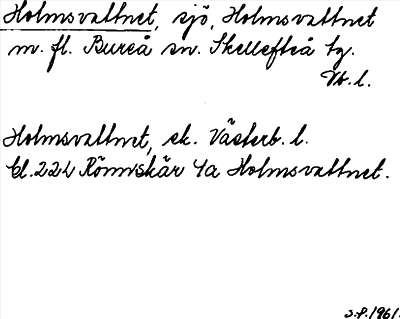 Holmsvattnet, sjö, Holmsvattnet
m. fl. Bureå sn. Skellefteå tg.
Vb. l.
Holmsvattnet, ek. Västerb. l.
bl. 22L Rönnskär 4a Holmsvattnet.
J.P. 1961.